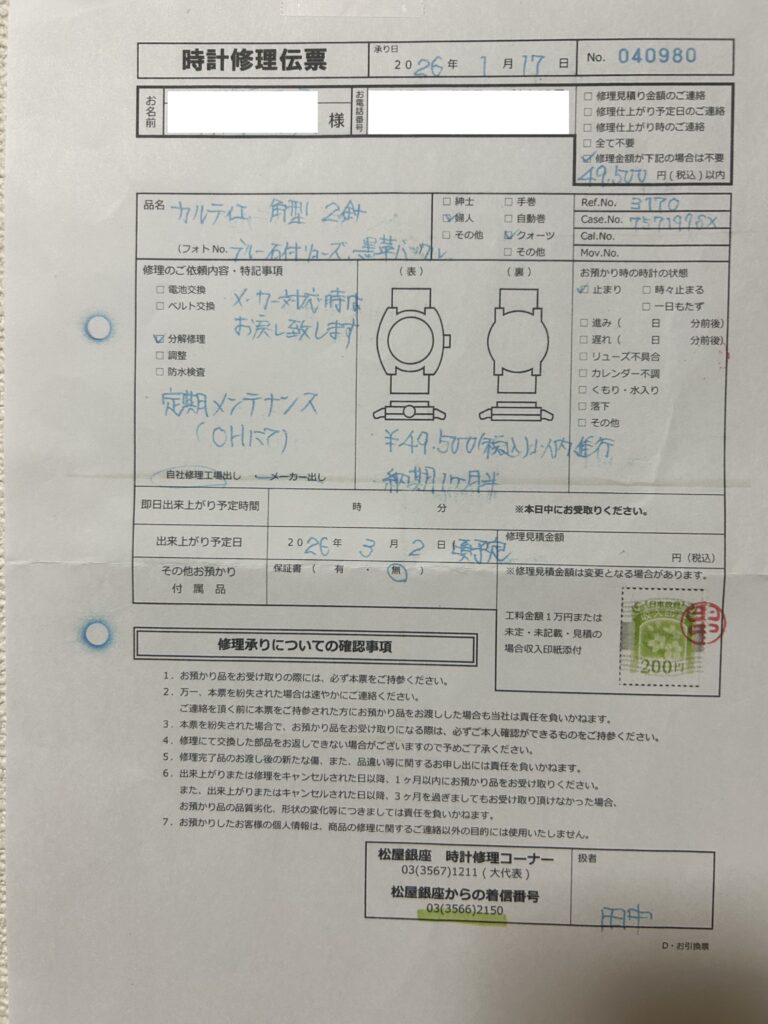 時計修理伝票
承り日
2026年 1月17日
No. 040980
お名前
様
お電話番号
□ 修理見積り金額のご連絡
□ 修理仕上がり予定日のご連絡
□ 修理仕上がり時のご連絡
□ 全て不要
☑ 修理金額が下記の場合は不要
49.500 円(税込)以内
品名 カルティエ 角型 2針
(フォトNo. ブルー石付リューズ、黒革バックル
□ 紳士 □ 手巻
☑ 婦人 □ 自動巻
□ その他 ☑ クォーツ
□ その他
Ref.No. 3170
Case.No.
Cal.No.
Mov.No.
修理のご依頼内容・特記事項
□ 電池交換
□ ベルト交換
☑ 分解修理
□ 調整
□ 防水検査
メーカー対応時は
お戻し致します
定期メンテナンス
(OHにて)
自社修理工場出し ・ メーカー出し
(表) (裏)
¥49.500(税込)以内進行
納期1ヶ月半
お預かり時の時計の状態
☑ 止まり □ 時々止まる
□ 一日もたず
□ 進み( 日 分前後)
□ 遅れ( 日 分前後)
□ リューズ不具合
□ カレンダー不調
□ くもり・水入り
□ 落下
□ その他
即日出来上がり予定時間 時 分 ※本日中にお受取りください。
出来上がり予定日 2026年 3月 2日 頃予定
修理見積金額
円(税込)
その他お預かり
付属品
保証書( 有 ・ 無 )
※修理見積金額は変更となる場合があります。
工料金額1万円または
未定・未記載・見積の
場合収入印紙添付
日本政府
200円
修理承りについての確認事項
1.お預かり品をお受け取りの際には、必ず本票をご持参ください。
2.万一、本票を紛失された場合は速やかにご連絡ください。
ご連絡を頂く前に本票をご持参された方にお預かり品をお渡しした場合も当社は責任を負いかねます。
3.本票を紛失された場合で、お預かり品をお受け取りになる際は、必ずご本人確認ができるものをご持参ください。
4.修理にて交換した部品をお返しできない場合がございますので予めご了承ください。
5.修理完了品のお渡し後の新たな傷、また、品違い等に関するお申し出には責任を負いかねます。
6.出来上がりまたは修理をキャンセルされた日以降、1ヶ月以内にお預かり品をお受け取りください。
また、出来上がりまたはキャンセルされた日以降、3ヶ月を過ぎましてもお受け取り頂けなかった場合、
お預かり品の品質劣化、形状の変化等につきましては責任を負いかねます。
7.お預かりしたお客様の個人情報は、商品の修理に関するご連絡以外の目的には使用いたしません。
松屋銀座 時計修理コーナー
03(3567)1211(大代表)
松屋銀座からの着信番号
03(3566)2150
扱者
田中
D・お引換票